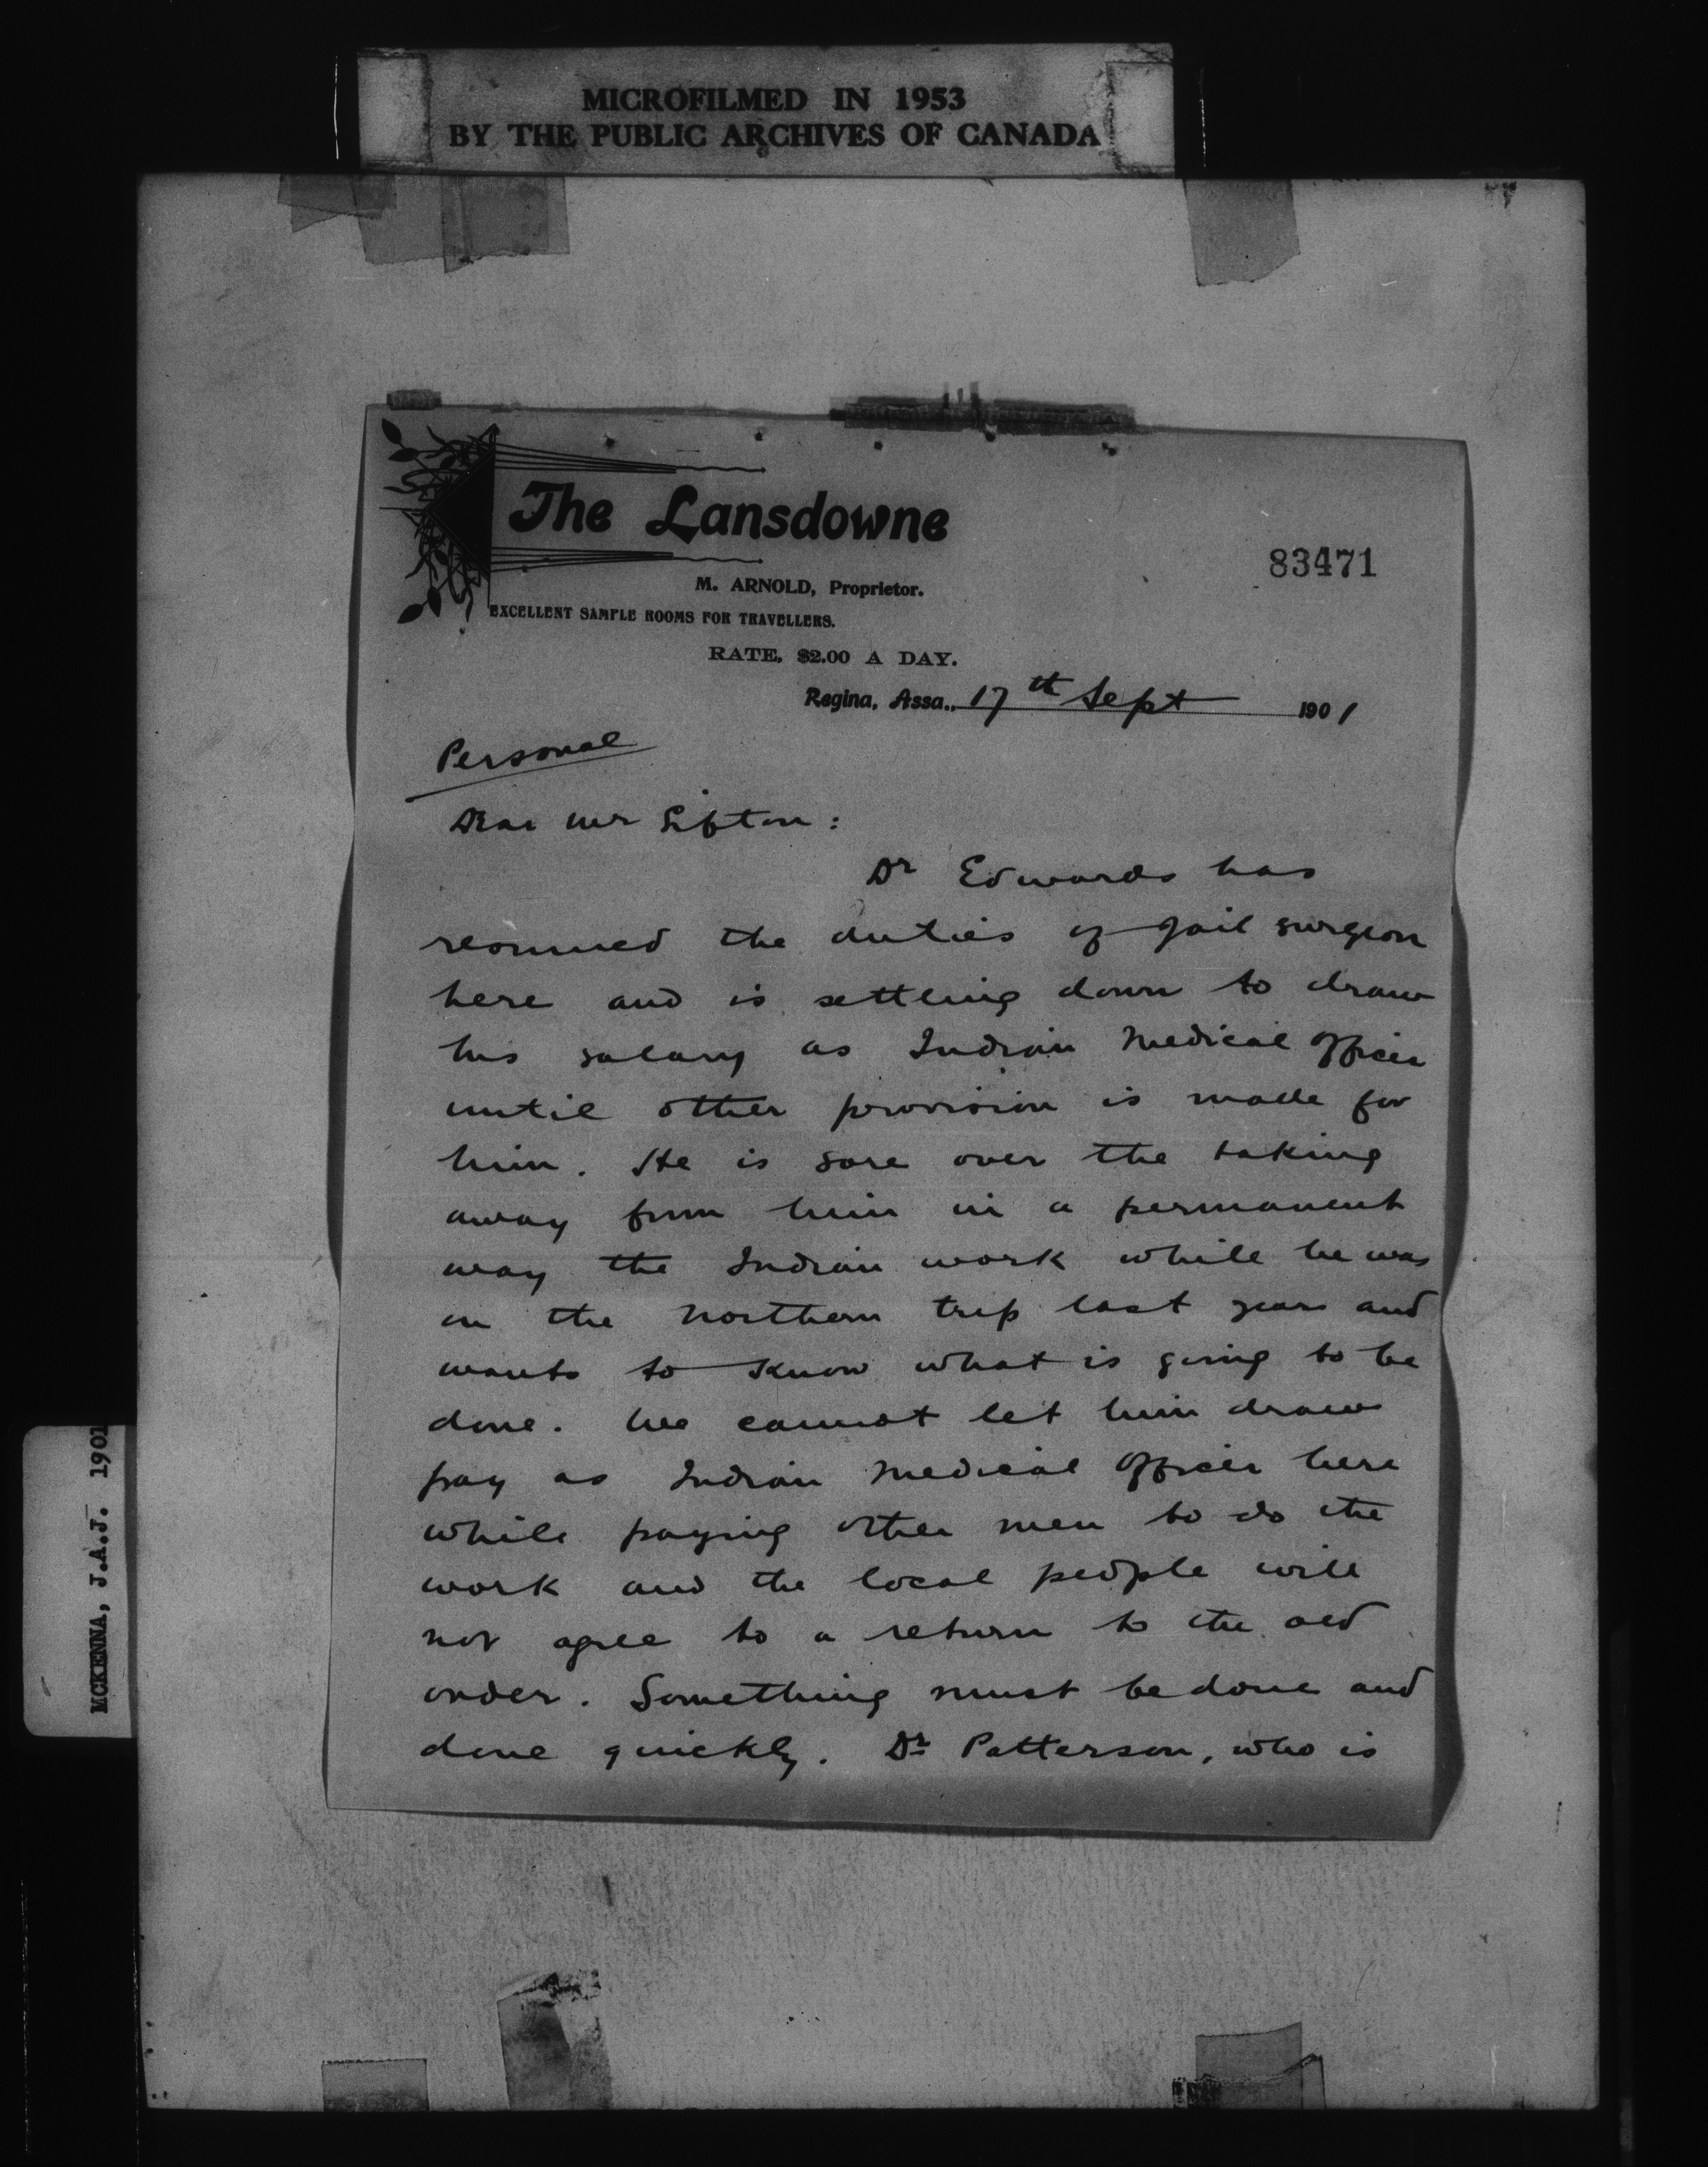 MICROFILMED IN 1953
BY THE PUBLIC ARCHIVES OF CANADA
The Lansdowne
83471
M. ARNOLD, Proprietor.
EXCELLENT SAMPLE ROOMS FOR TRAVELLERS.
RATE, $2.00 A DAY.
Regina, Assa., 17th Sept 1901
Personal
Dear Mr Sifton:
Dr Edwards has
resumed the duties of gail surgeon
here and is settling down to draw
his salary as Indian Medical Officer
until other provision is made for
him. He is sore over the taking
away from him in a permanent
way the Indian work while he was
on the northern trip last year and
wants to know what is going to be
done. We cannot let him draw
pay as Indian Medical Officer here
while paying other men to do the
work and the local people will
not agree to a return to the old
order. Something must be done and
done quickly. Dr Patterson, who is
MCKENNA, J.A.J. 1901